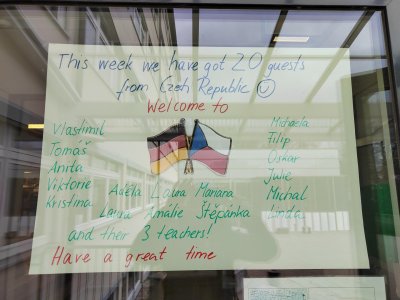 This week we have got 20 guests
from Czech Republic
Welcome to
Vlastimil
Tomáš
Anita
Viktorie
Kristina
Adéla Laura Mariana
Laura Amálie Štěpánka
Michaela
Filip
Oskar
Julie
Michal
Linda
and their 3 teachers!
Have a great time